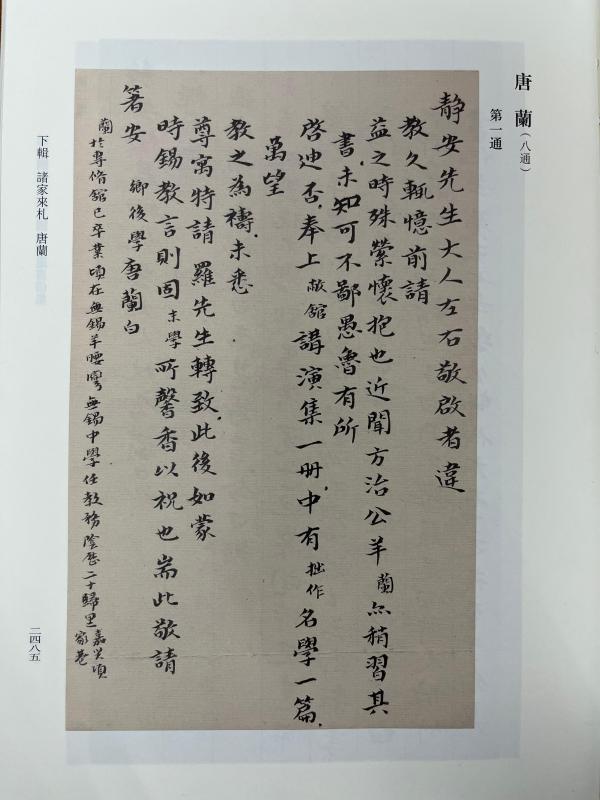 唐　蘭（八通）
第一通
静安先生大人左右敬啟者違
教久輒憶前請
益之時殊縈懷抱也近聞方治公羊蘭亦稍習其
書未知可不鄙愚魯有所
啓迪否奉上敝館講演集一册中有拙作名學一篇
萬望
教之為禱未悉
尊寓特請羅先生轉致此後如蒙
時錫教言則固末學所馨香以祝也耑此敬請
箸安　鄉後學唐蘭白
蘭於專脩館已卒業頃在無錫羊腰灣無錫中學任教務陰歷二十歸里嘉興項家巷
下輯　諸家來札　唐蘭
二四八五